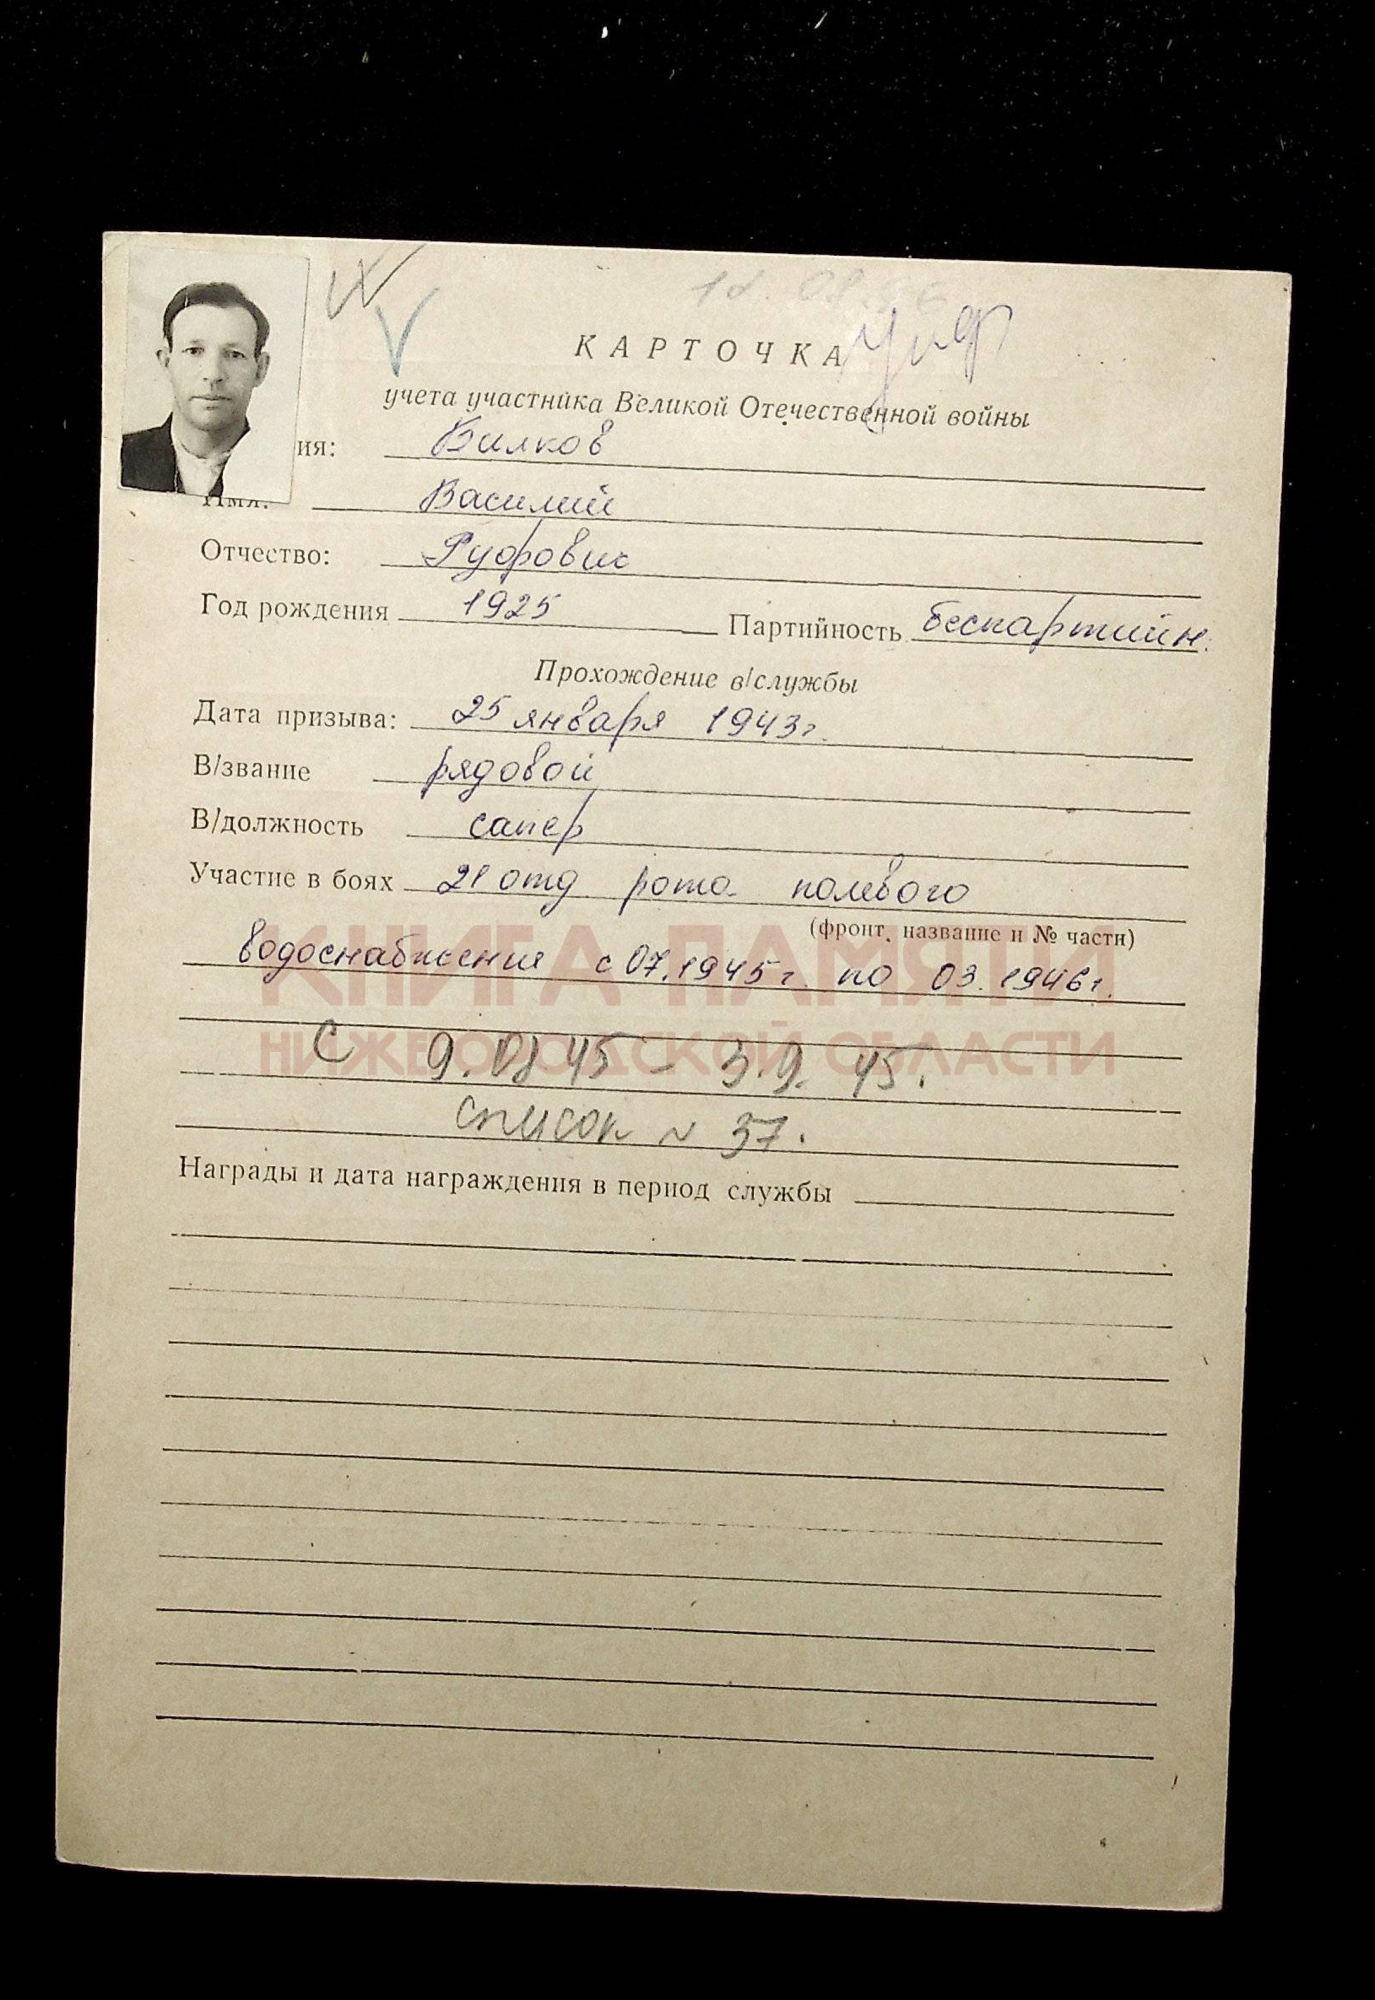 КАРТОЧКА
учета участника Великой Отечественной войны
ия: Вилков
Имя: Василий
Отчество: Руфович
Год рождения 1925 Партийность беспартийн.
Прохождение в/службы
Дата призыва: 25 января 1943г.
В/звание рядовой
В/должность сапер
Участие в боях 21 отд рота полевого
(фронт, название и № части)
водоснабжения с 07.1945г. по 03.1946г.
КНИГА ПАМЯТИ
НИЖЕГОРОДСКОЙ ОБЛАСТИ
С 9.08 45 - 3.9. 45.
список № 37.
Награды и дата награждения в период службы